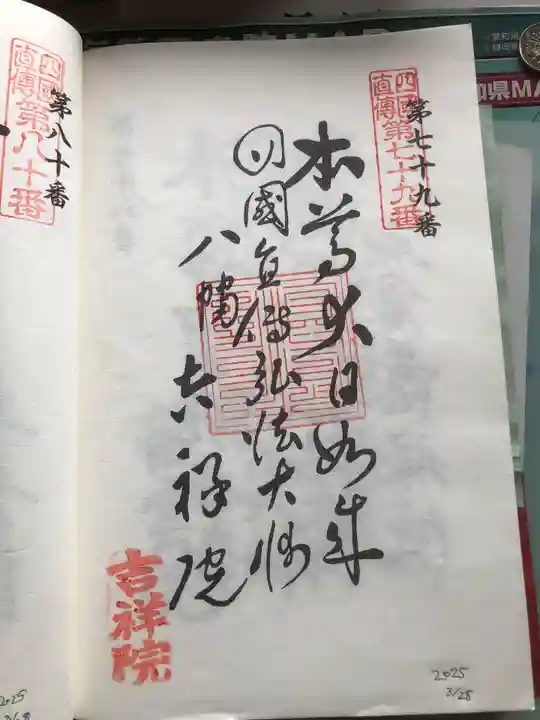 四國
直傳第七十九番
第七十九番
本尊大日如来
四國直傳弘法大師
八幡
吉祥院
吉祥院
2025
3/28
四國
直傳第八十番
第八十番
2025
3/28
県MA